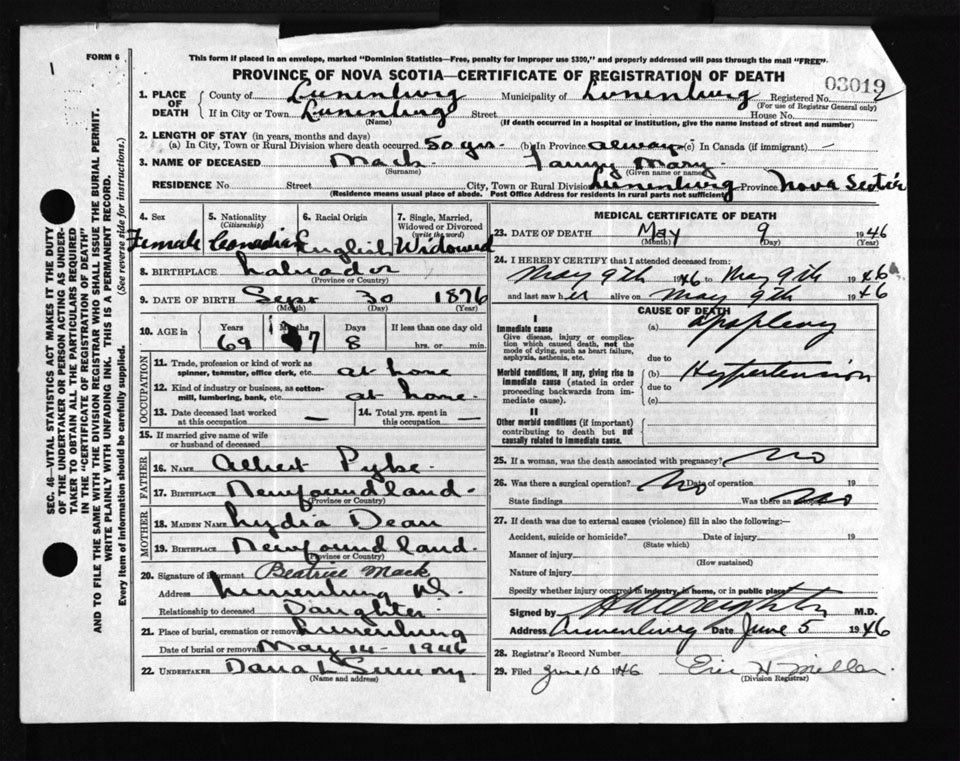 FORM 6
1
This form if placed in an envelope, marked "Dominion Statistics—Free, penalty for improper use $300," and properly addressed will pass through the mail "FREE".
PROVINCE OF NOVA SCOTIA—CERTIFICATE OF REGISTRATION OF DEATH
03019
1. PLACE OF DEATH County of Lunenburg Municipality of Lunenburg Registered No.
(For use of Registrar General only)
If in City or Town Lunenburg Street House No.
(Name) (If death occurred in a hospital or institution, give the name instead of street and number)
2. LENGTH OF STAY (in years, months and days)
(a) In City, Town or Rural Division where death occurred 50 yrs. (b) In Province always (c) In Canada (if immigrant) —
3. NAME OF DECEASED Mack Fanny Mary
(Surname) (Given name or names)
RESIDENCE No. Street City, Town or Rural Division Lunenburg Province Nova Scotia
(Residence means usual place of abode. Post Office Address for residents in rural parts not sufficient)
4. Sex 5. Nationality (Citizenship) 6. Racial Origin 7. Single, Married, Widowed or Divorced (write the word)
Female Canadian English Widowed
8. BIRTHPLACE Labrador
(Province or Country)
9. DATE OF BIRTH Sept 30 1876
(Month) (Day) (Year)
10. AGE in Years Months Days If less than one day old
69 7 8 hrs. or min.
OCCUPATION
11. Trade, profession or kind of work as spinner, teamster, office clerk, etc. at home
12. Kind of industry or business, as cotton-mill, lumbering, bank, etc. at home.
13. Date deceased last worked at this occupation — 14. Total yrs. spent in this occupation —
15. If married give name of wife or husband of deceased
FATHER
16. NAME Albert Pyke.
17. BIRTHPLACE Newfoundland.
(Province or Country)
MOTHER
18. MAIDEN NAME Lydia Dean
19. BIRTHPLACE Newfoundland.
(Province or Country)
20. Signature of informant Beatrice Mack
Address Lunenburg
Relationship to deceased Daughter.
21. Place of burial, cremation or removal Lunenburg
Date of burial or removal May 14 - 1946
22. UNDERTAKER Dana L
(Name and address)
MEDICAL CERTIFICATE OF DEATH
23. DATE OF DEATH May 9 1946
(Month) (Day) (Year)
24. I HEREBY CERTIFY that I attended deceased from:
May 9th 1946 to May 9th 1946
and last saw her alive on May 9th 1946
CAUSE OF DEATH
I
Immediate cause (a) apoplexy
Give disease, injury or complication which caused death, not the mode of dying, such as heart failure, asphyxia, asthenia, etc.
due to
Morbid conditions, if any, giving rise to immediate cause (stated in order proceeding backwards from immediate cause). (b) Hypertension
due to
(c)
II
Other morbid conditions (if important) contributing to death but not causally related to immediate cause.
25. If a woman, was the death associated with pregnancy? no
26. Was there a surgical operation? No Date of operation 19
State findings Was there an No
27. If death was due to external causes (violence) fill in also the following:—
Accident, suicide or homicide? Date of injury 19
(State which)
Manner of injury
(How sustained)
Nature of injury
Specify whether injury occurred in industry, in home, or in public place
Signed by M.D.
Address Lunenburg Date June 5 1946
28. Registrar's Record Number
29. Filed June 10 1946 Eric H Millar
(Division Registrar)
SEC. 46—VITAL STATISTICS ACT MAKES IT THE DUTY
OF THE UNDERTAKER OR PERSON ACTING AS UNDER-
TAKER TO OBTAIN ALL THE PARTICULARS REQUIRED
IN THE "CERTIFICATE OF REGISTRATION OF DEATH"
AND TO FILE THE SAME WITH THE DIVISION REGISTRAR WHO SHALL ISSUE THE BURIAL PERMIT.
WRITE PLAINLY WITH UNFADING INK. THIS IS A PERMANENT RECORD.
Every item of information should be carefully supplied. (See reverse side for instructions.)